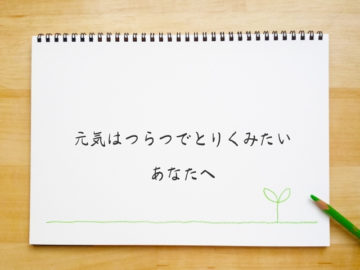 元気はつらつでとりくみたい
あなたへ